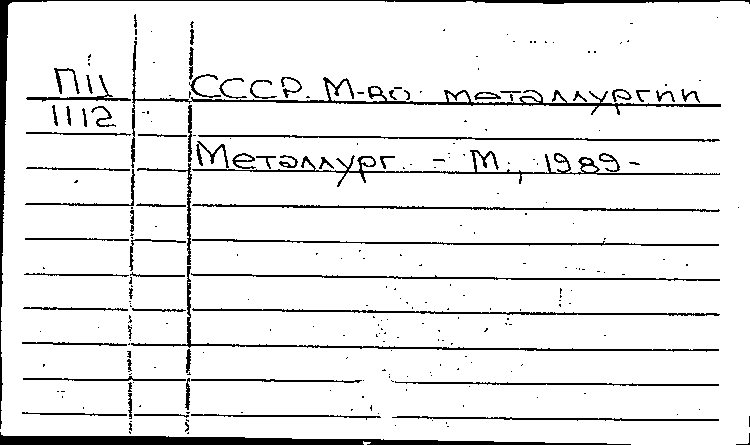 П11 СССР. М-во металлургии
1112
Металлург. - М., 1989-